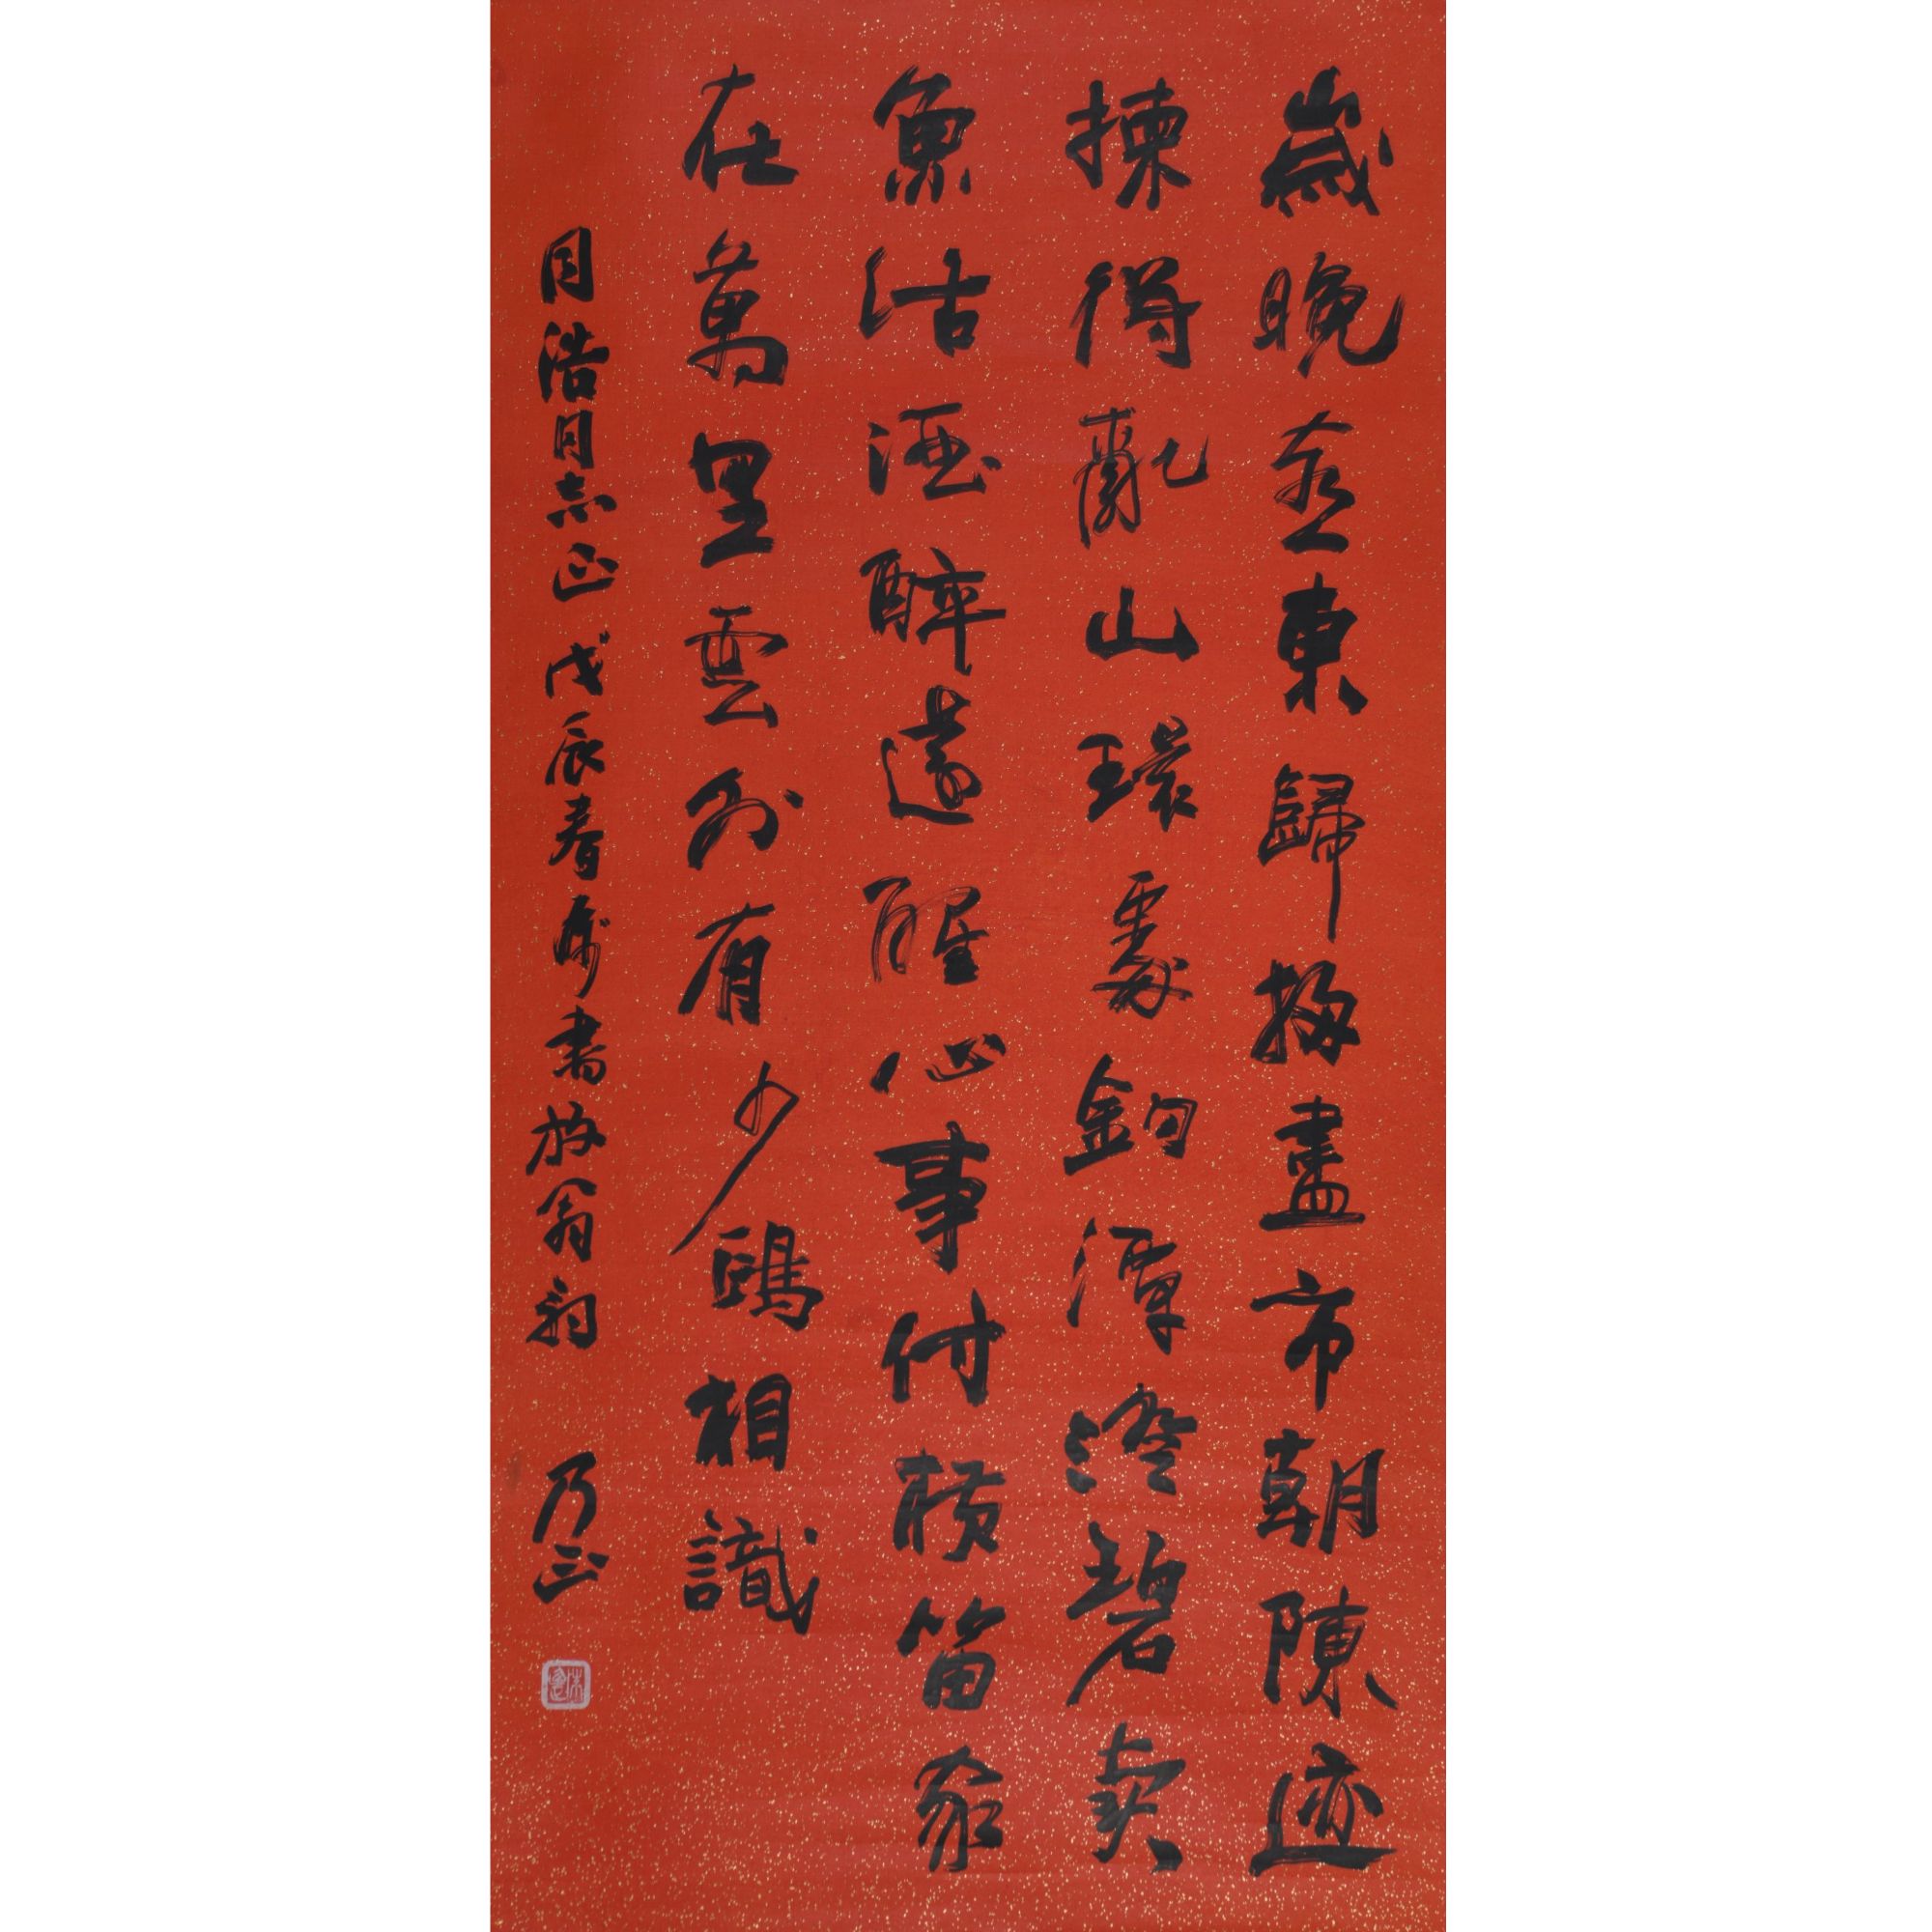 歲晚喜東歸掃盡市朝陳迹
揀得亂山環處釣潭澄碧卖
魚沽酒醉還醒心事付橫笛家
在萬里雲外有少鷗相識
浩同志正 戊辰春書放翁詞 乃正